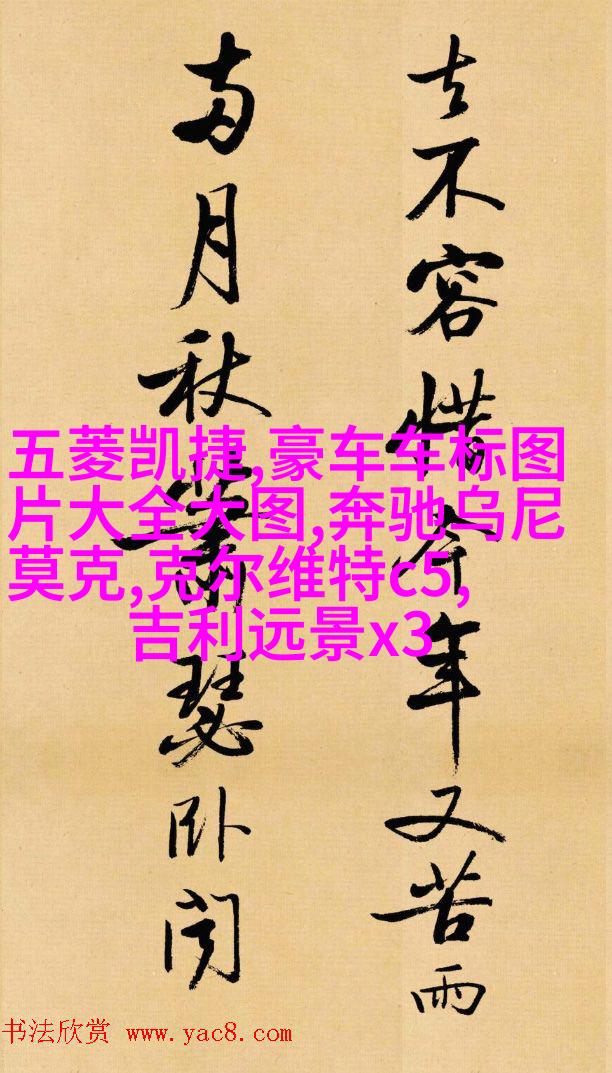 去不容惜今年又苦雨
兩月秋蕭瑟卧聞
五菱凯捷,豪车车标图
片大全大图,奔驰乌尼
莫克,克尔维特c5,
吉利远景x3
书法欣赏 www.yac8.com